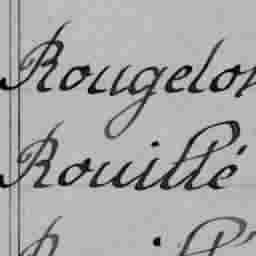 Rougelon
Rouillé